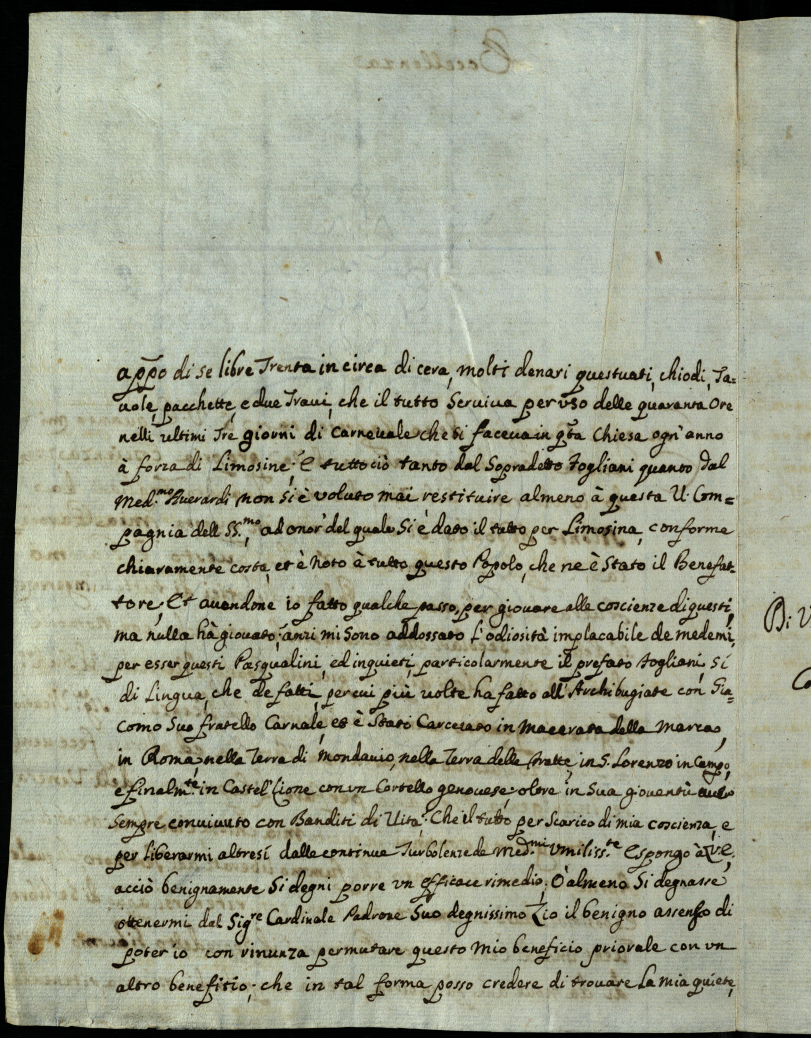 appo di se libre Trenta in circa di cera, molti denari questuati, chiodi, Ta=
uole, pacchette, e due Traui, che il tutto Seruiua per uso delle quaranta Ore
nelli ultimi Tre giorni di Carneuale che si faceua in qta Chiesa ogn'anno
à forza di Limosine; E tutto ciò tanto dal Sopradetto Fogliani quanto dal
Med.mo Auerardi non si è voluto mai restituire almeno à questa V. Com=
pagnia dell SS.mo, ad onor del quale si è dato il tutto per Limosina, conforme
chiaramente costa, et è noto à tutto questo Popolo, che ne è Stato il Benefat=
tore; Et auendone io fatto qualche passo, per giouare alle coscienze di questi,
ma nulla hà giouato, anzi mi sono addossato l'odiosità implacabile de medemi,
per esser questi Pasqualini, ed inquieti, particolarmente il prefato Fogliani, si
di Lingua, che de fatti, per cui più volte ha fatto all'Archibugiate con Gia=
como Suo fratello Carnale, et è Stato Carcerato in Macerata della Marca,
in Roma, nella Terra di Mondauio, nella Terra delle Fratte, in S. Lorenzo in Campo,
e finalm.te in Castel Lione con un Cortello genouese, oltre in Sua giouentù
Sempre conuiuuto con Banditi di Vita. Che il tutto per Scarico di mia coscienza, e
per liberarmi altresì dalle continue Turbolenze de Med.mi Vmiliss.te Espongo à V.E.
acciò benignamente Si degni porre un efficace rimedio, O almeno Si degnasse
ottenermi dal Sig.re Cardinale Padrone Suo degnissimo Zio il benigno assenso di
poter io con rinunza permutare questo Mio beneficio priorale con un
altro benefitio, che in tal forma posso credere di trouare la mia quiete,